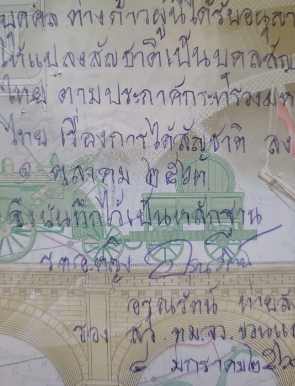 บุคคล ต่างด้าวผู้ได้รับอนุญา
ให้แปลงสัญชาติเป็นบุคคลสัญ
ไทย ตามประกาศกระทรวงมห
ไทย เรื่องการได้สัญชาติ ลง
๑ ตุลาคม ๒๕๖๓
จึงบันทึกไว้เป็นหลักฐาน
ร.ต.อ.หญิง
อรุณรัตน์
รอง สว.
๔ มกราคม